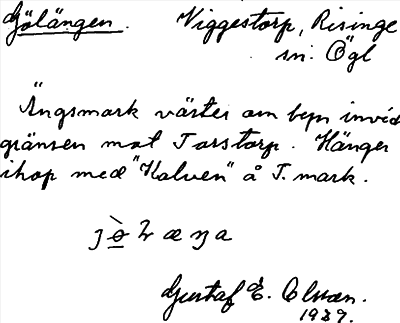 Gölängen. Viggestorp, Risinge
sn. Ögl
Ängsmark väster om byn invid
gränsen mot Torstorp. Hänger
ihop med "Kalven" å T. mark.
Gustaf E. Olsson.
1929.